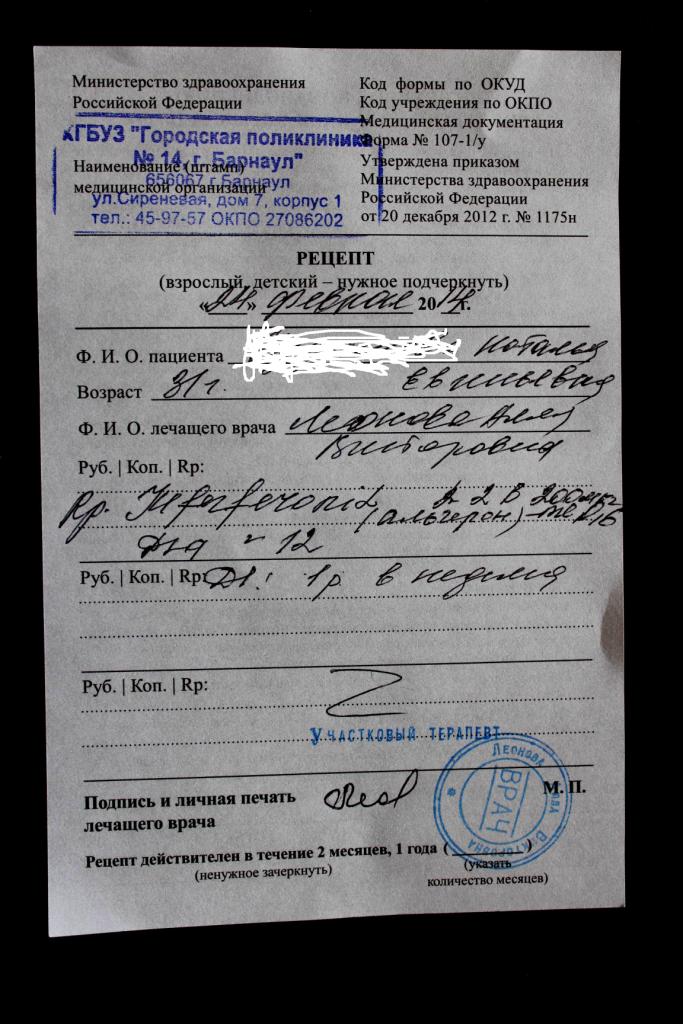 Министерство здравоохранения
Российской Федерации
КГБУЗ "Городская поликлиника
№ 14, г. Барнаул"
Наименование (штамп)
медицинской организации
656067 г.Барнаул
ул.Сиреневая, дом 7, корпус 1
тел.: 45-97-57 ОКПО 27086202
Код формы по ОКУД
Код учреждения по ОКПО
Медицинская документация
Форма № 107-1/у
Утверждена приказом
Министерства здравоохранения
Российской Федерации
от 20 декабря 2012 г. № 1175н
РЕЦЕПТ
(взрослый, детский – нужное подчеркнуть)
«24» февраля 2014г.
Ф. И. О. пациента Наталья
Возраст 31 г. Евгеньевна
Ф. И. О. лечащего врача Леонова
Викторовна
Руб. | Коп. | Rp:
Rp. 2 В 200мкг
(альгерон)
№ 12
Руб. | Коп. | Rp: 1р в неделю
Руб. | Коп. | Rp:
Участковый терапевт
Леонова Викторовна
ВРАЧ
Подпись и личная печать М. П.
лечащего врача
Рецепт действителен в течение 2 месяцев, 1 года (______)
(ненужное зачеркнуть) (указать
количество месяцев)